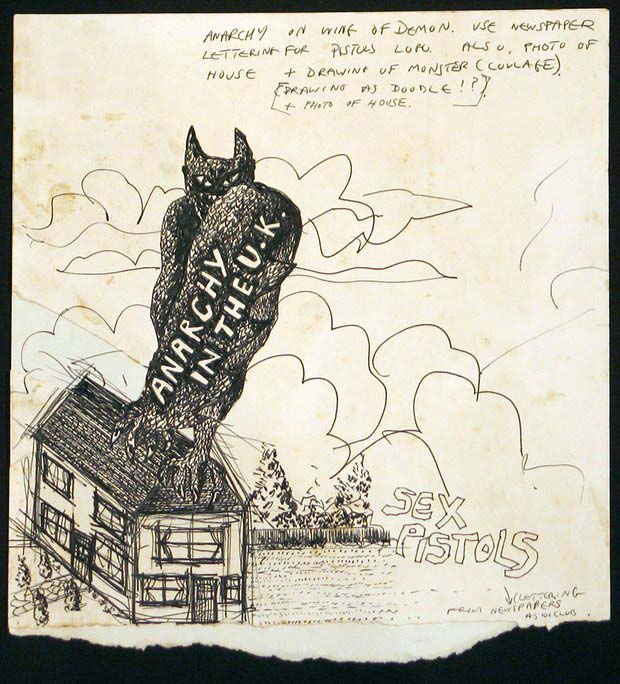 ANARCHY ON WING OF DEMON. USE NEWSPAPER
LETTERING FOR PISTOLS LOGO. ALSO, PHOTO OF
HOUSE + DRAWING OF MONSTER (COLLAGE).
[DRAWING AS DOODLE!?]
+ PHOTO OF HOUSE.
ANARCHY
IN THE U.K.
SEX
PISTOLS
(LETTERING
FROM NEWSPAPERS
CLUB.